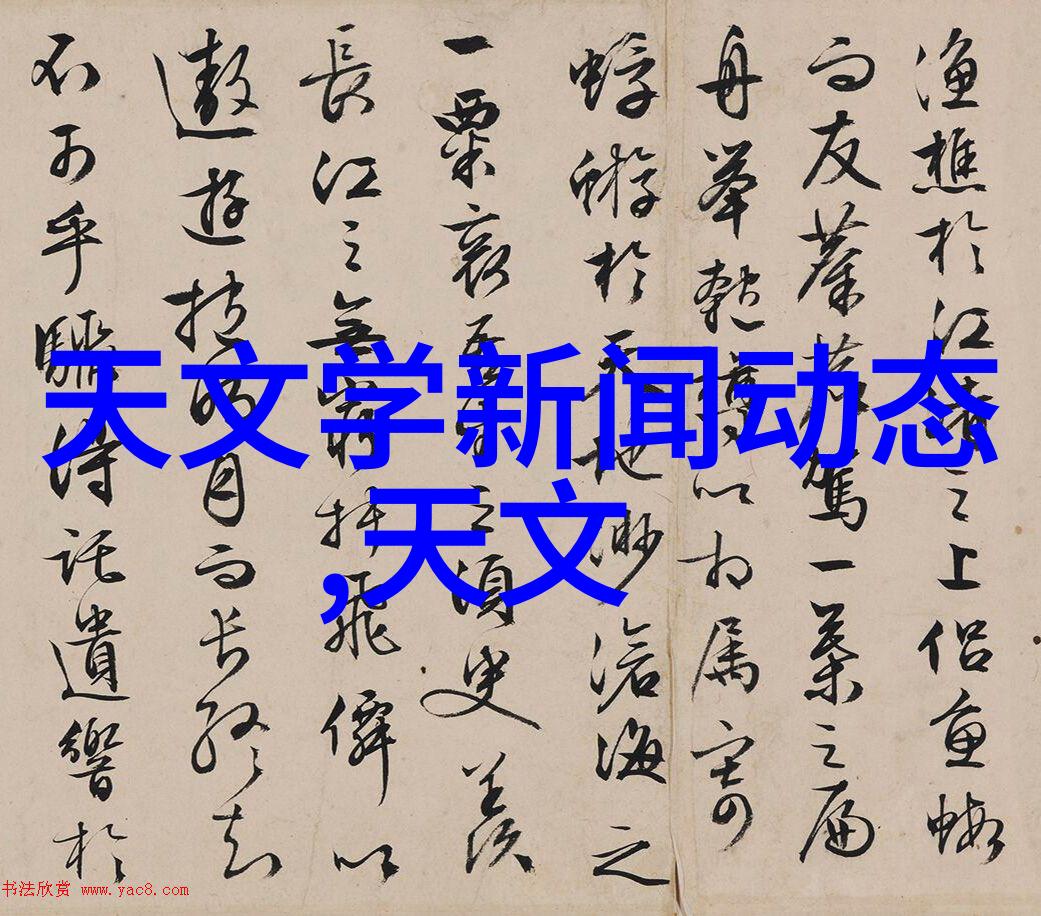 漁樵於江渚之上侶魚蝦
而友麋鹿駕一葉之扁
舟舉匏樽以相屬寄
蜉蝣於天地渺滄海之
一粟哀吾生之須臾羨
長江之無窮挾飛僊以
遨遊抱明月而長終知
不可乎驟得託遺響於
天文学新闻动态
,天文
书法欣赏 www.yac8.com